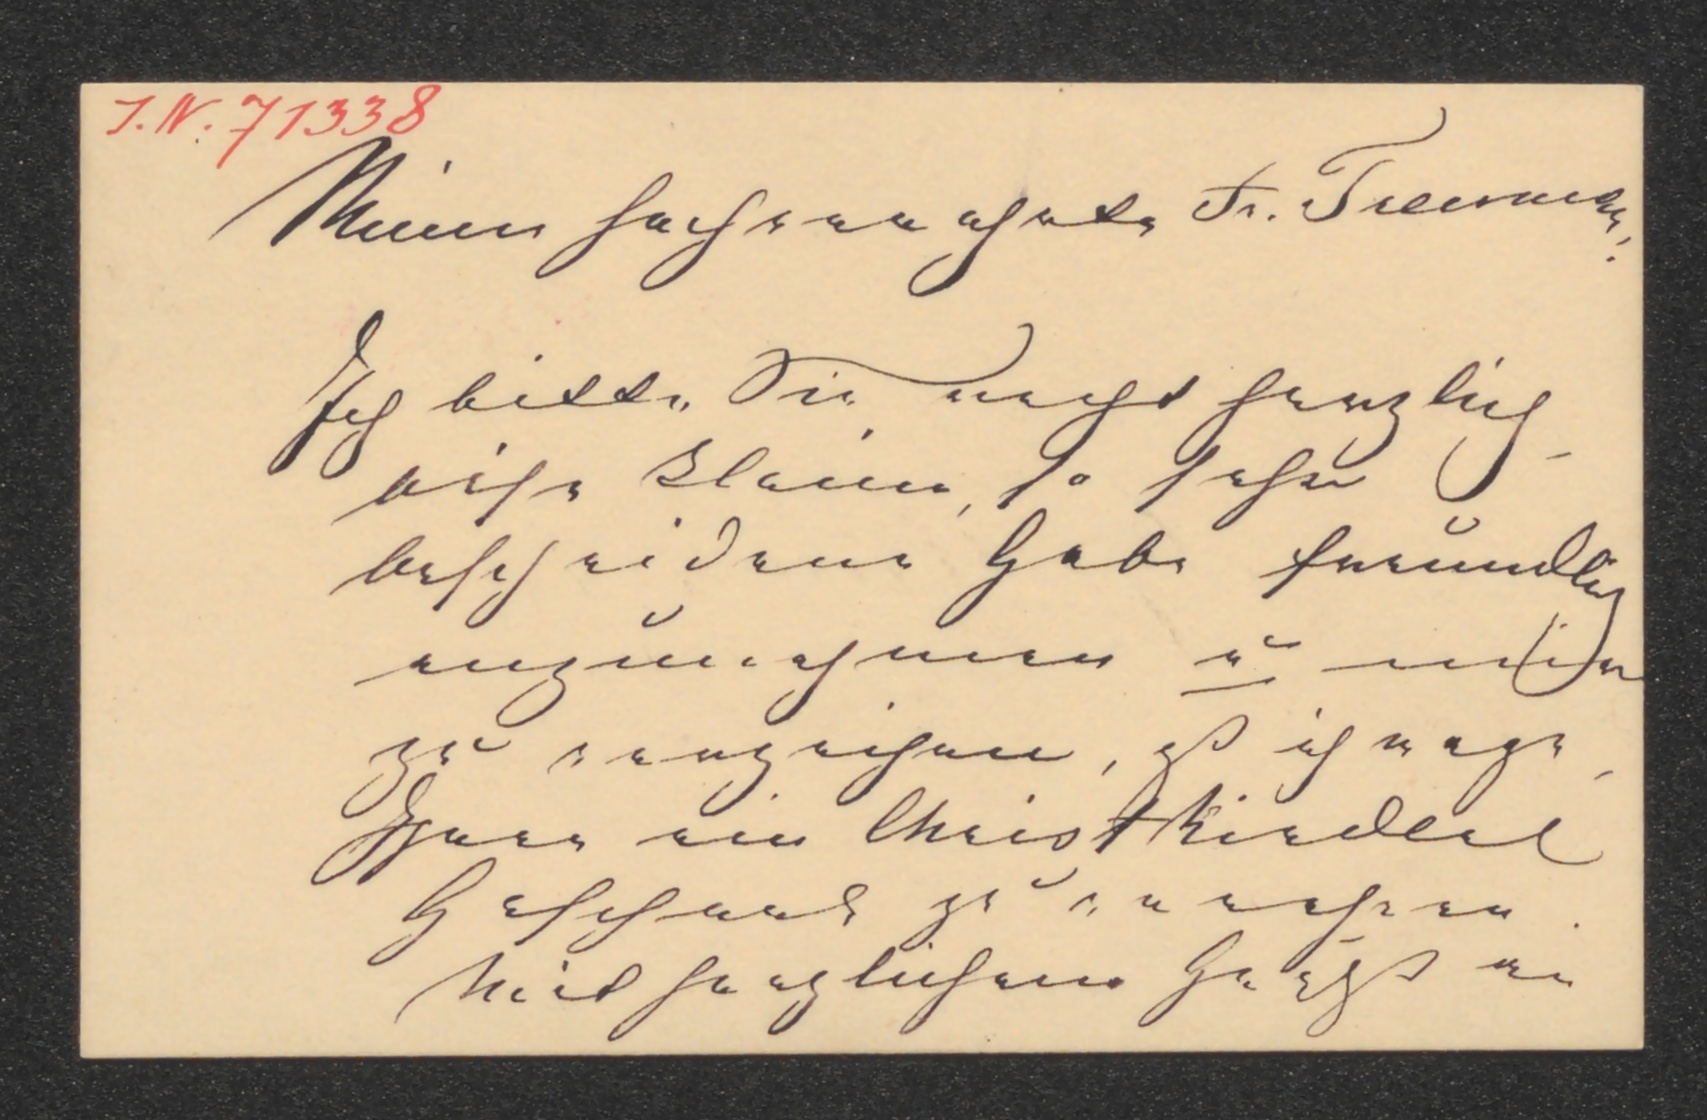 I.N. 71338
Meine hochverehrte Fr.
Ich bitte Sie recht herzlich
diese kleine, so sehr
bescheidene Gabe freundlich
anzunehmen u mir
zu verzeihen, daß ich wage,
Ihnen ein Christkinderl
Geschenk zu verehren.
Mit herzlichem Gruß an